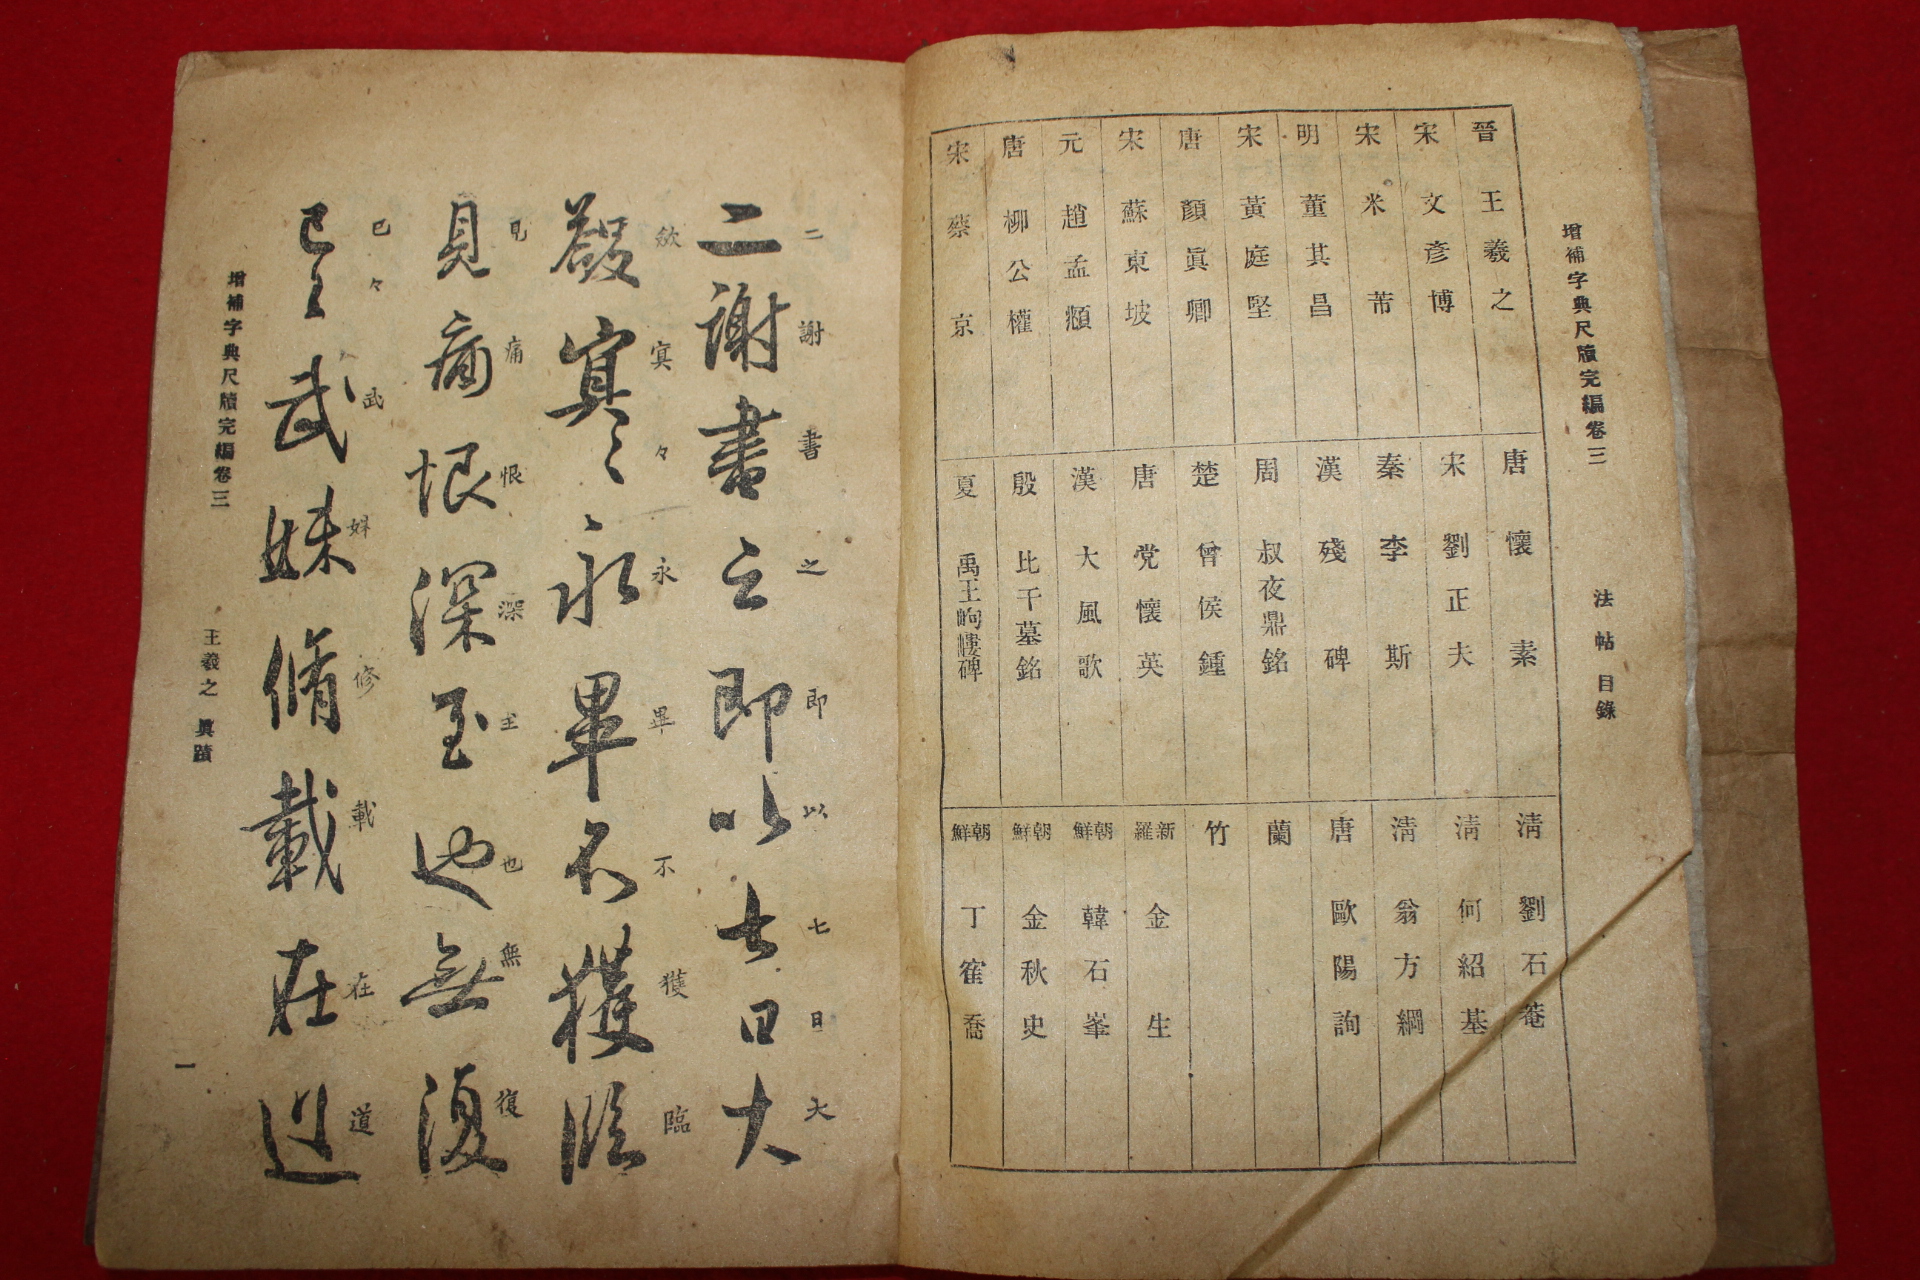 增補字典尺牘完編卷三 法帖目錄
晉 王羲之
宋 文彥博
宋 米芾
明 董其昌
宋 黃庭堅
唐 顏眞卿
宋 蘇東坡
元 趙孟頫
唐 柳公權
宋 蔡京
唐 懷素
宋 劉正夫
秦 李斯
漢 殘碑
周 叔夜鼎銘
楚 曾侯鍾
唐 党懷英
漢 大風歌
殷 比干墓銘
夏 禹王岣嶁碑
淸 劉石菴
淸 何紹基
淸 翁方綱
唐 歐陽詢
蘭
竹
新羅 金生
朝鮮 韓石峯
朝鮮 金秋史
朝鮮 丁寉喬
二謝書之即以七日大
二謝書之即以七日大
斂冥々永畢不獲臨
歛冥々永畢不獲臨
見痛恨深至也無復
見痛恨深至也無復
已々武妹修載在道
已々武妹脩載在道
增補字典尺牘完編卷三 王羲之 眞蹟 一